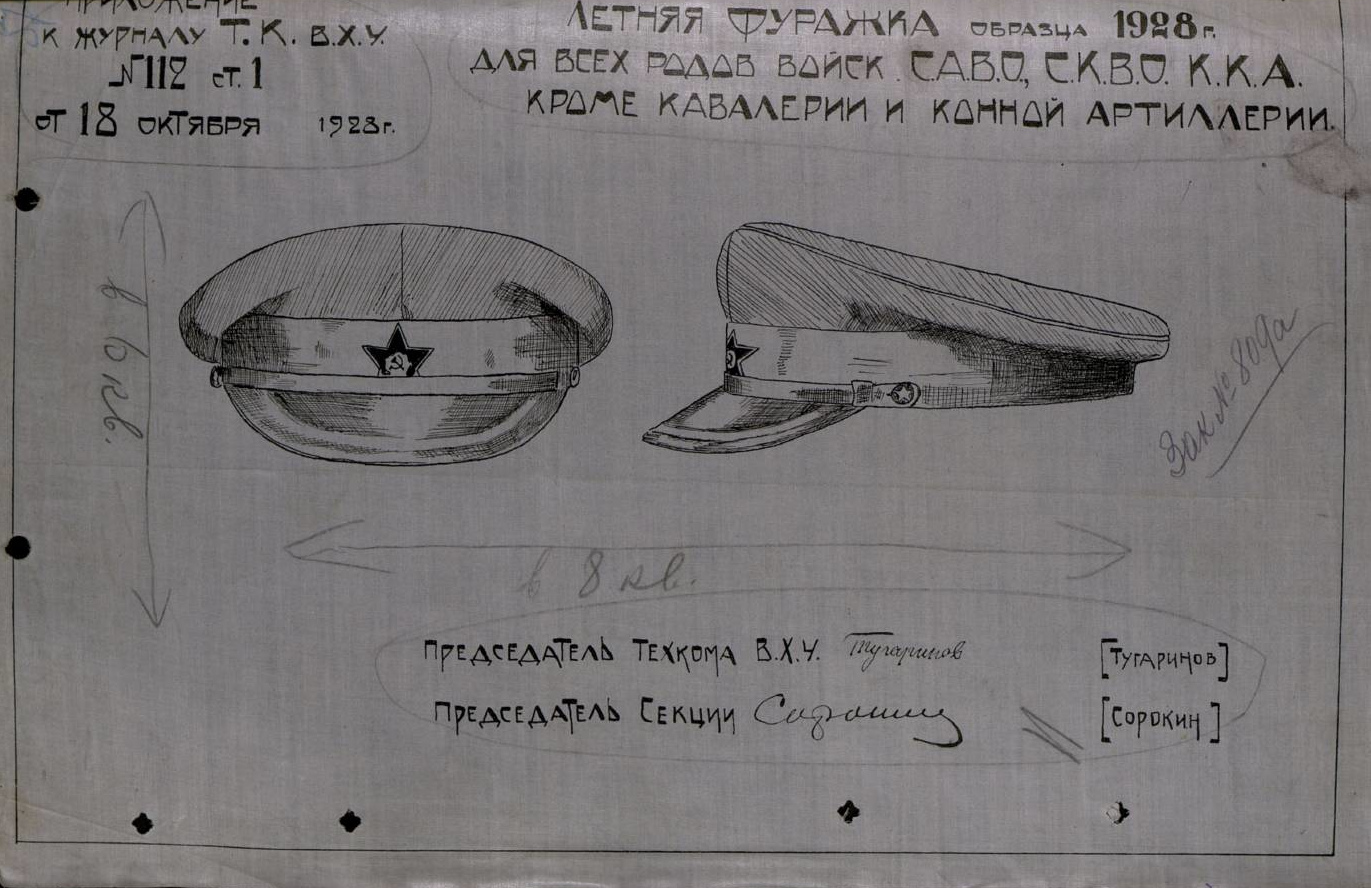 ПРИЛОЖЕНИЕ
К ЖУРНАЛУ Т.К. В.Х.У.
№112 ст.1
от 18 октября 1928г.
ЛЕТНЯЯ ФУРАЖКА ОБРАЗЦА 1928г.
ДЛЯ ВСЕХ РОДОВ ВОЙСК. С.А.В.О, С.К.В.О. К.К.А.
КРОМЕ КАВАЛЕРИИ И КОННОЙ АРТИЛЛЕРИИ.
в 6 кв.
Зак № 809а
в 8 кв.
Председатель Техкома В.Х.У. Тугаринов [Тугаринов]
Председатель Секции Сорокин [Сорокин]